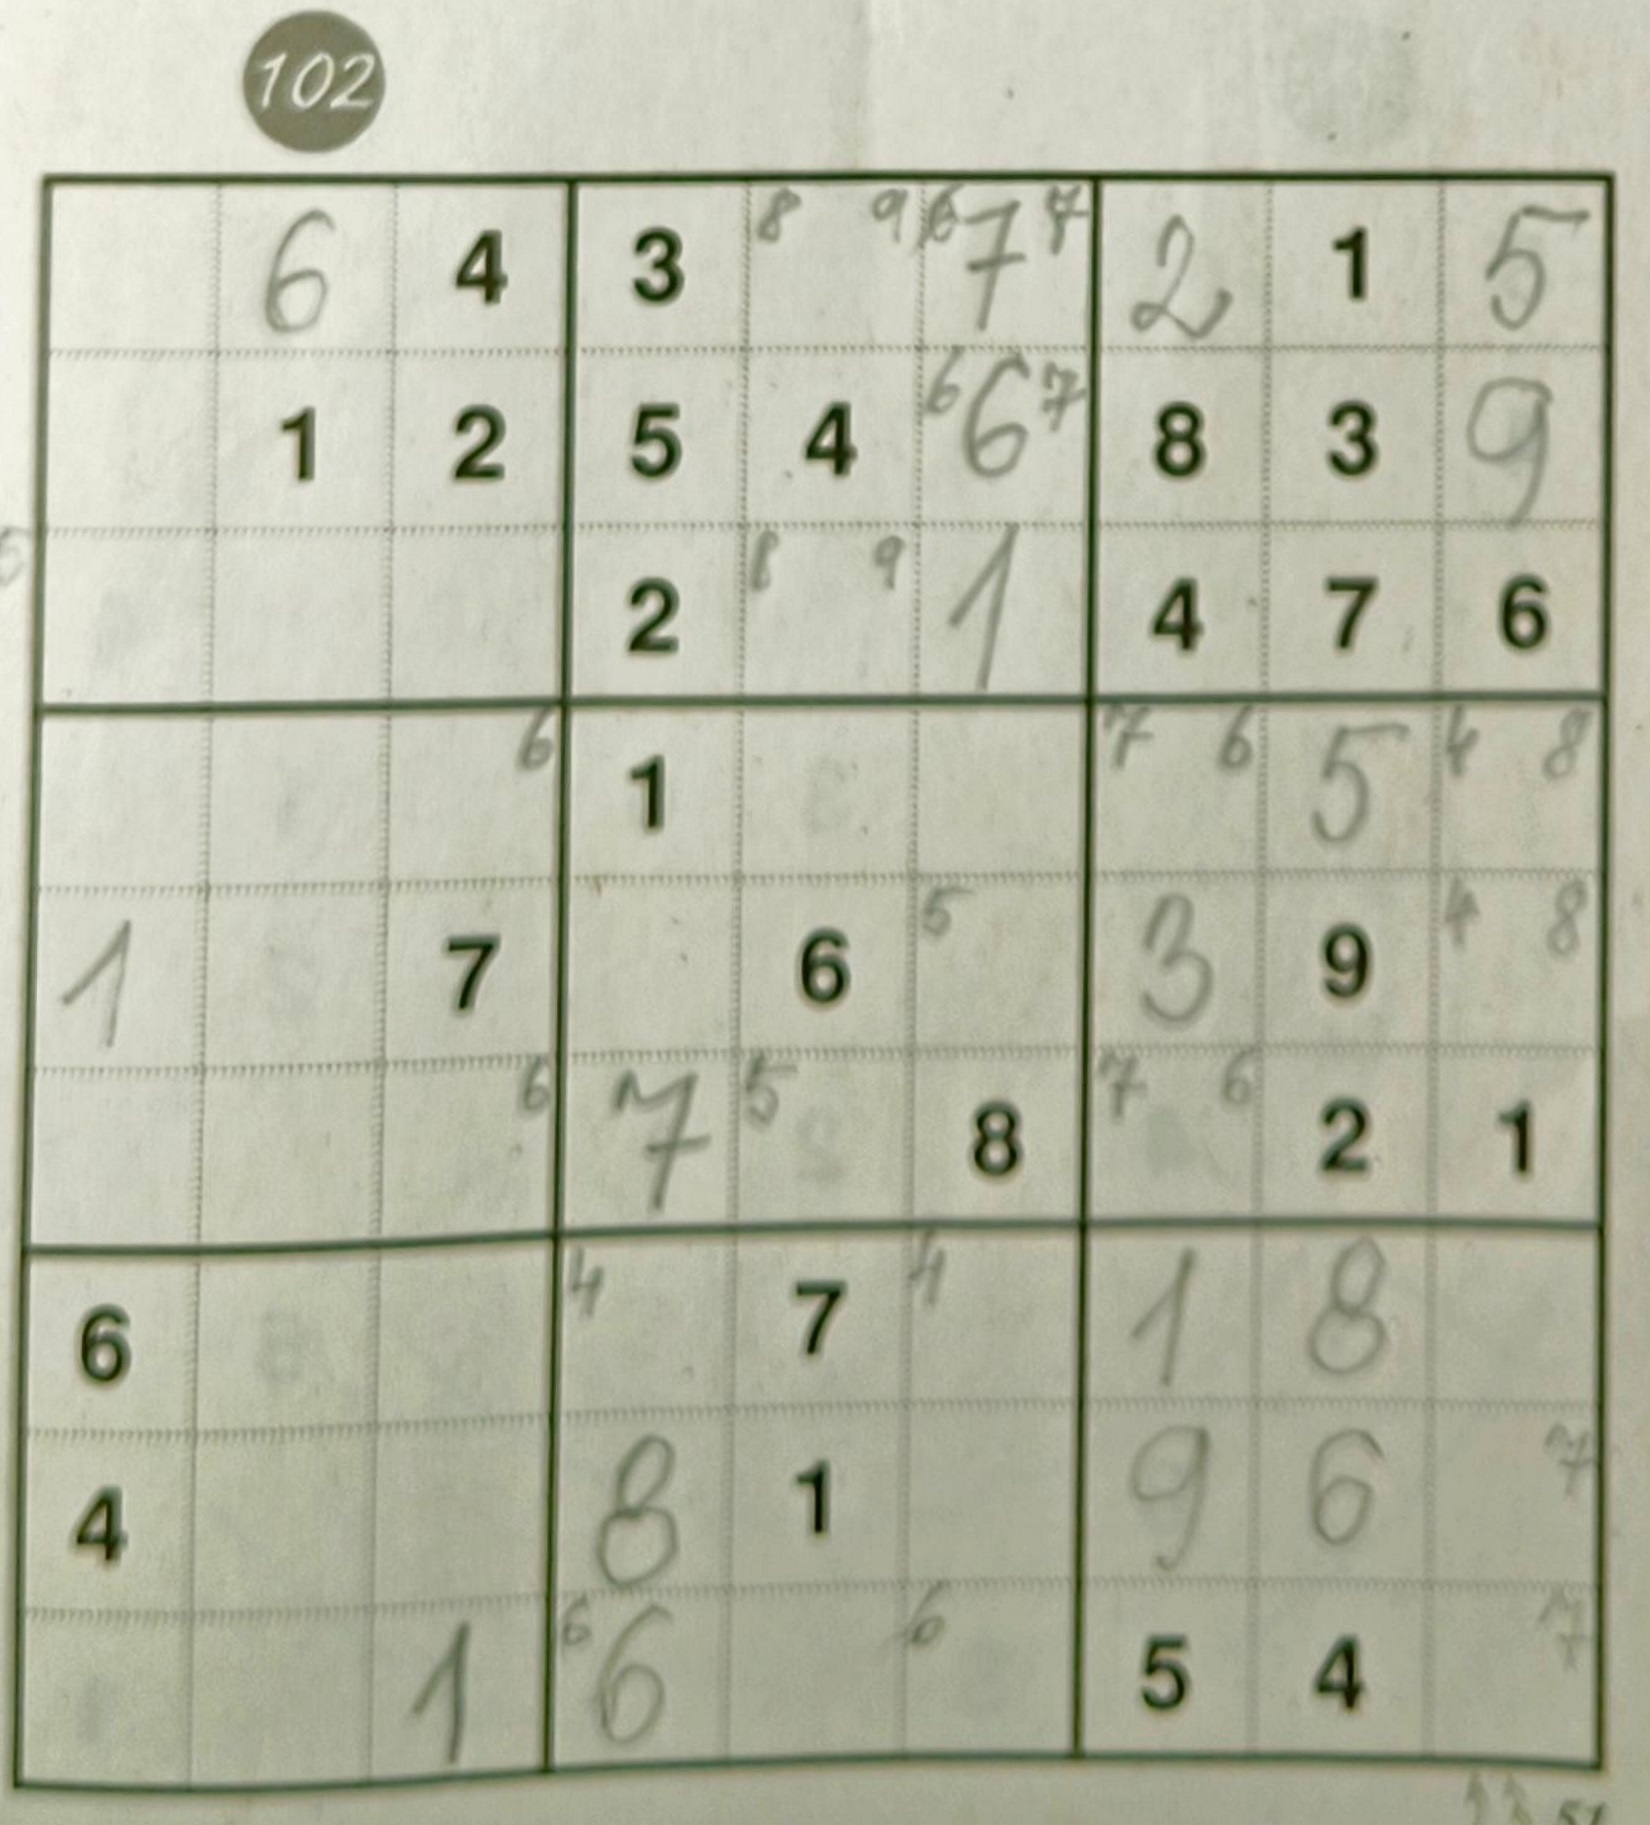 102
6 4 3 8 9 6 7 7 2 1 5
1 2 5 4 6 6 7 8 3 9
2 8 9 1 4 7 6
6 1 7 6 5 4 8
1 7 6 5 3 9 4 8
6 7 5 8 7 6 2 1
6 4 7 4 1 8
4 8 1 9 6 7
1 6 6 6 5 4 7